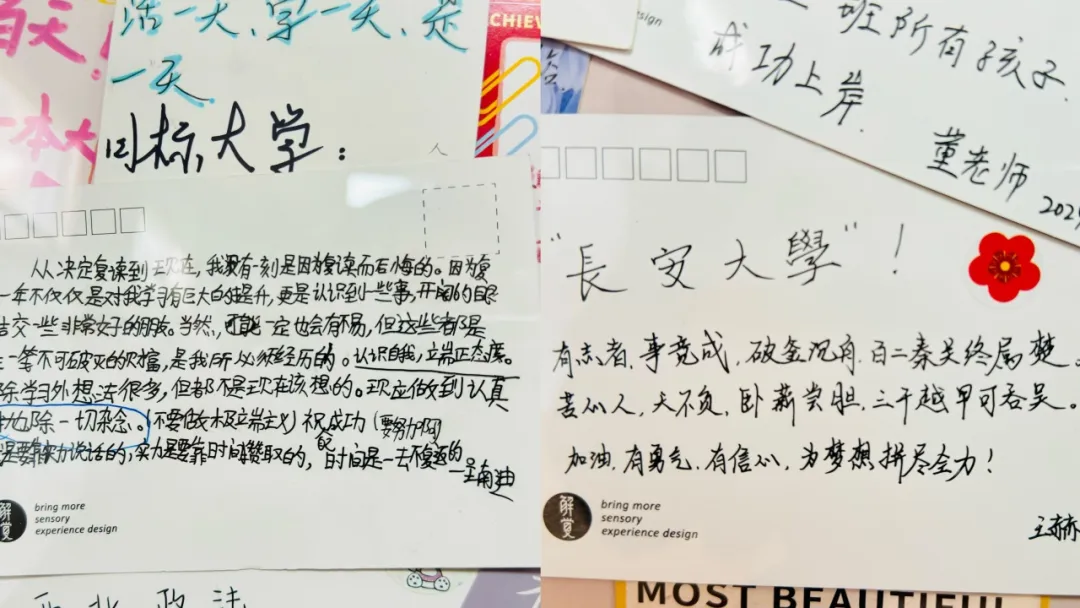 活一天、学一天、是
一天.
目标大学:
一本大
CHIEV
从决定复读到现在,我没有一刻是因为复读而后悔的。因为复
一年不仅仅是对我学习有巨大的提升,更是认识到一些事,开阔的眼
结交一些非常友好的朋友。当然,可能一定也会有不易,但这些都是
一笔不可破灭的财富,是我所必须经历的。认识自我,立端正态度。
除学习外想法很多,但都不是现在该想的。现应做到认真
除一切杂念。(不要做极端主义)祝成功(要努力啊)
是要靠实力说话的,实力是要靠时间攒取的,时间是一去不复返的
bring more
sensory
experience design
西北政法
班所有孩子
成功上岸.
董老师
"長安大學"!
有志者.事竟成.破釜沉舟.百二秦关终属楚。
苦心人,天不负,卧薪尝胆,三千越甲可吞吴。
加油.有勇气,有信心,为梦想拼尽全力!
解賞
bring more
sensory
experience design
MOST BEAUTIFUL